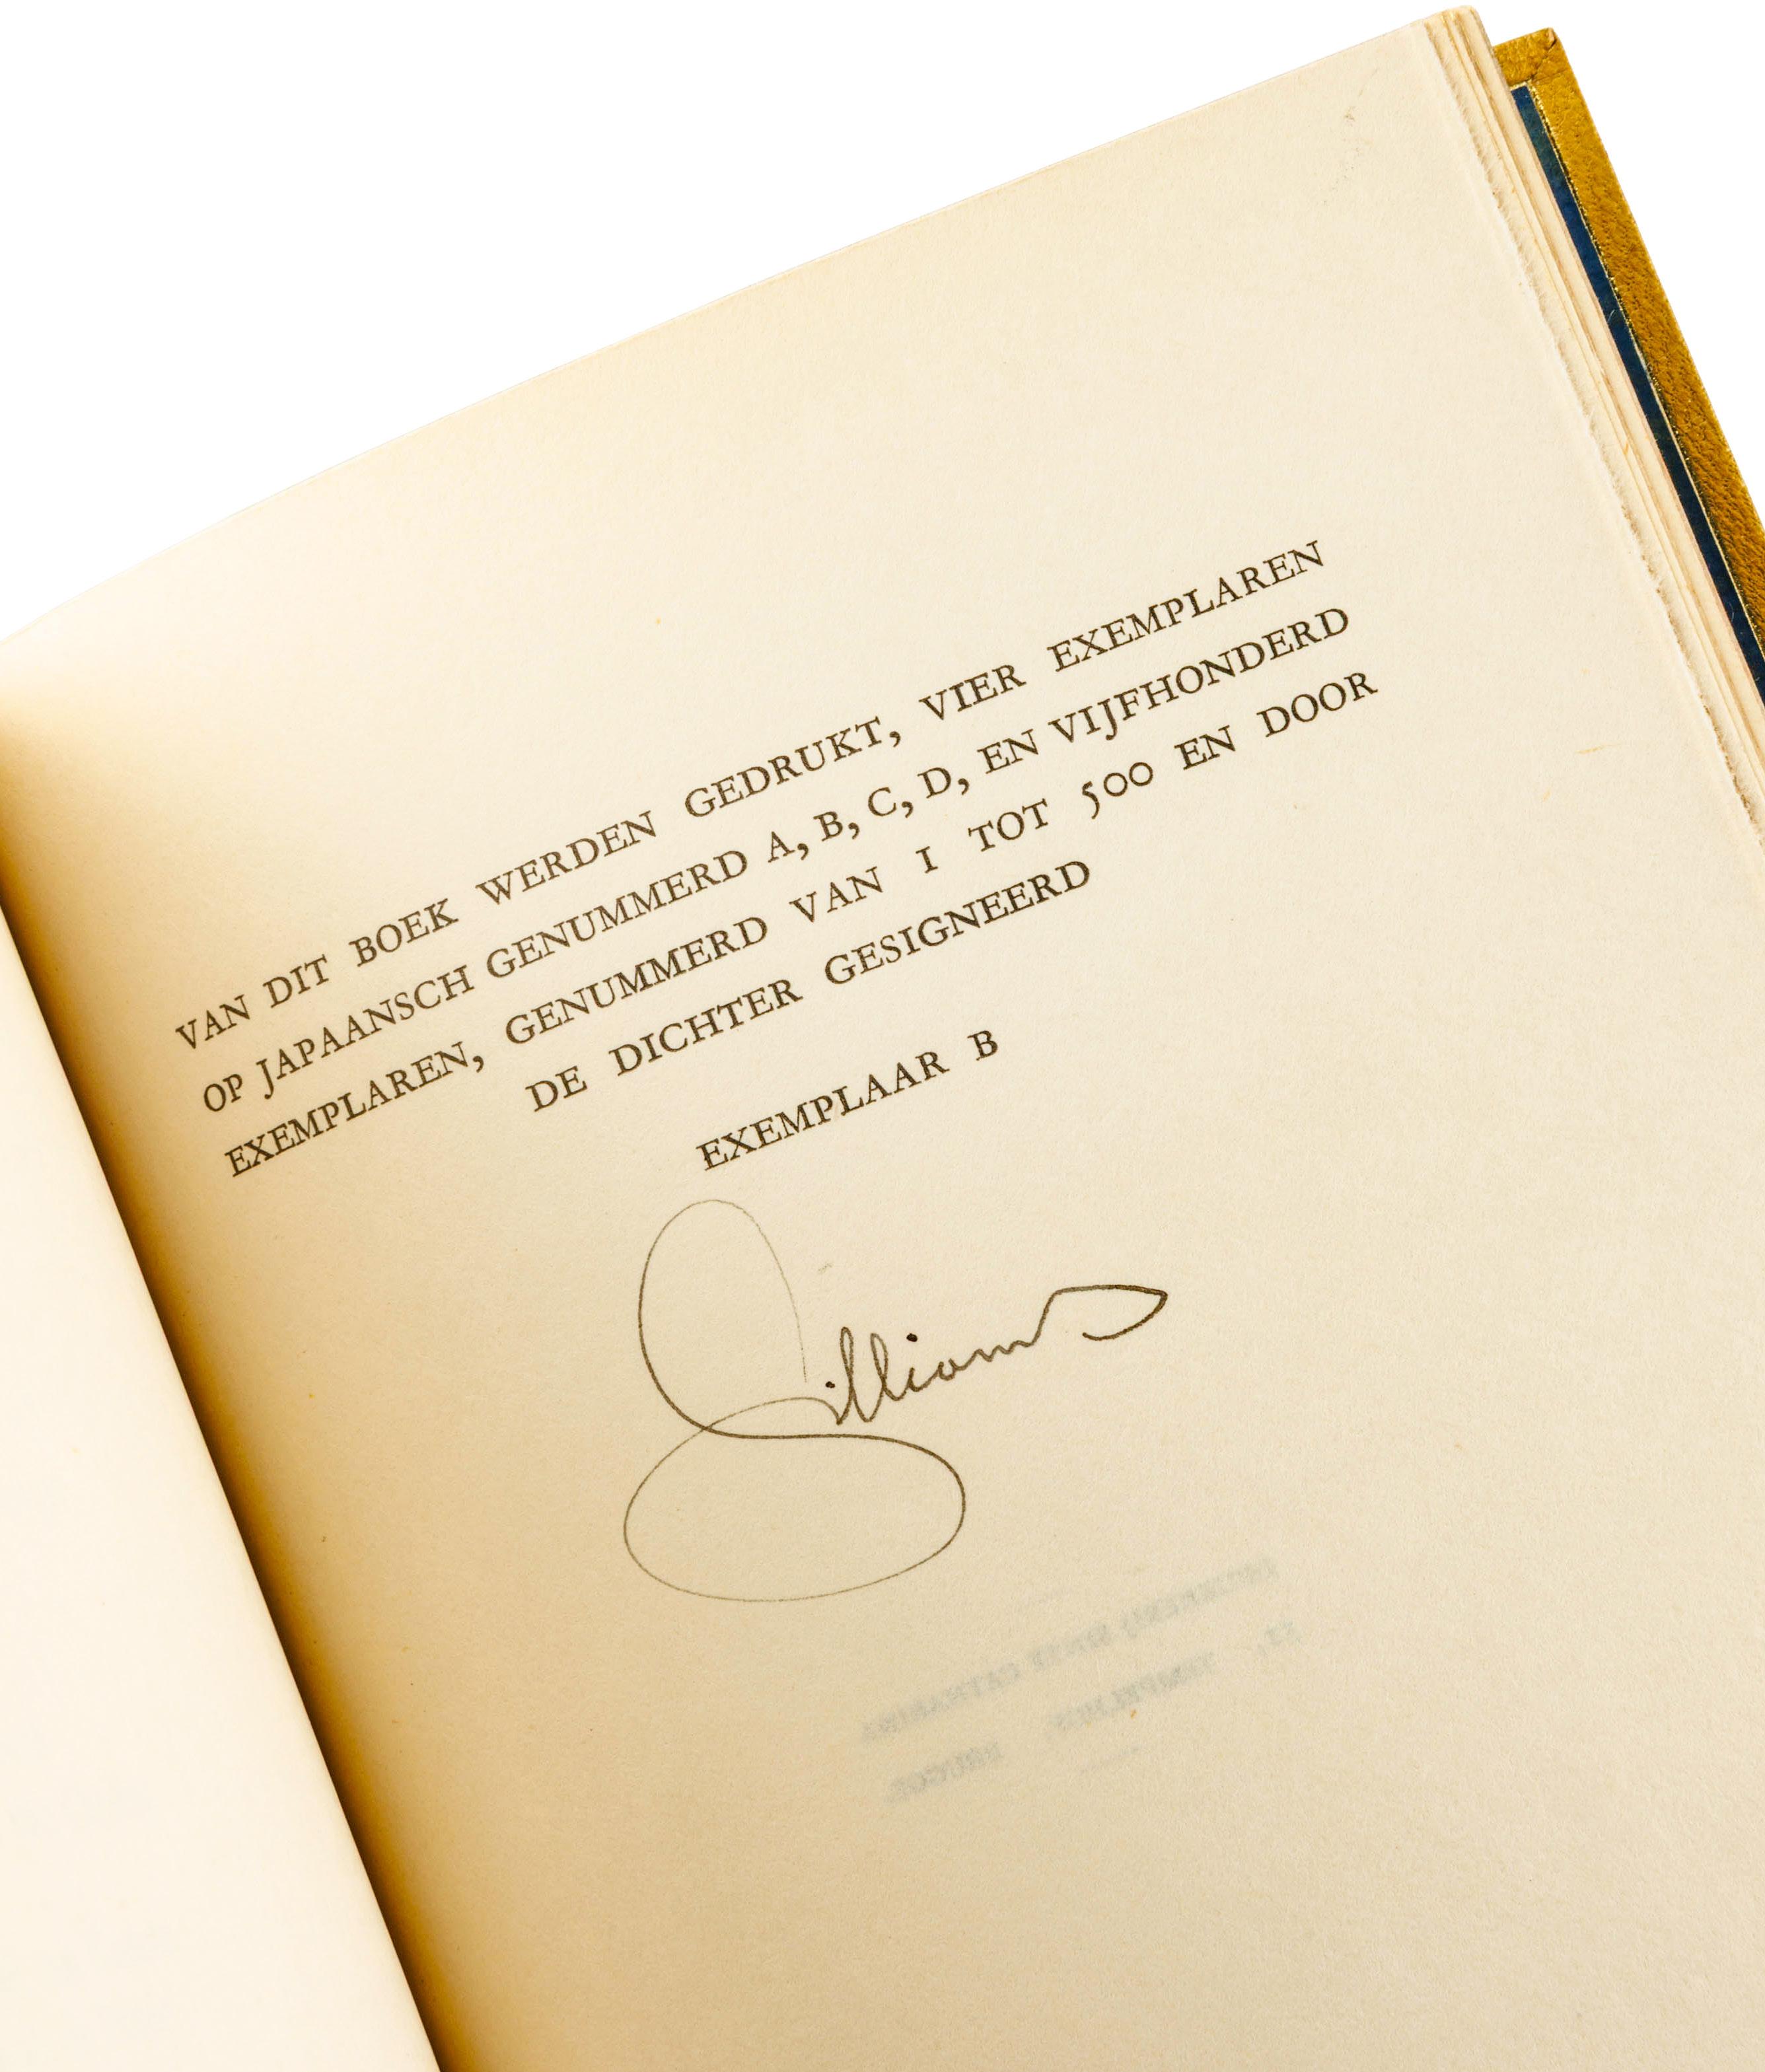 VAN DIT BOEK WERDEN GEDRUKT, VIER EXEMPLAREN
OP JAPAANSCH GENUMMERD A, B, C, D, EN VIJFHONDERD
EXEMPLAREN, GENUMMERD VAN 1 TOT 500 EN DOOR
DE DICHTER GESIGNEERD
EXEMPLAAR B